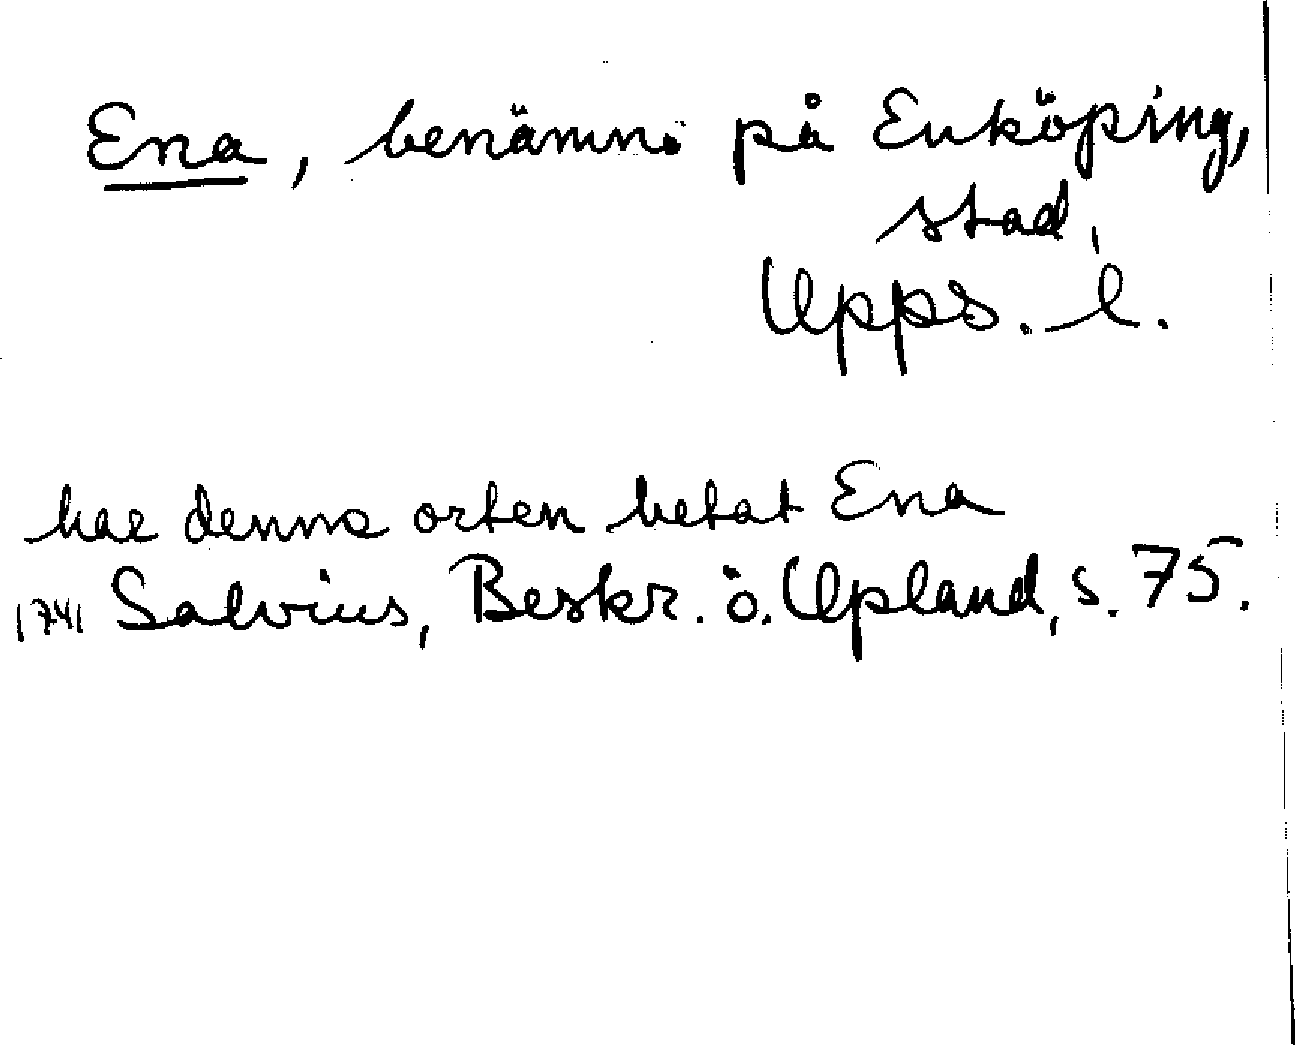 Ena, benämn. på Enköping,
stad,
Upps. l.
har denna orten hetat Ena
1741 Salvius, Beskr. ö. Upland, s. 75.